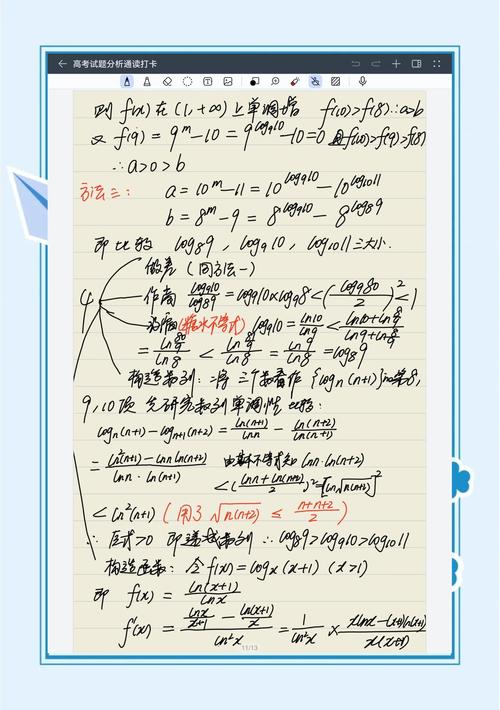 高考试题分析通读打卡
则 f(x) 在 (1,+∞) 上单调增 f(10)>f(8)∴a>b
又 f(9)=9^m-10=9^{log₉10}-10=0 且f(10)>f(9)>f(8)
∴a>0>b
方法三: a=10^m-11=10^{log₉10}-10^{log₁₀11}
b=8^m-9=8^{log₉10}-8^{log₈9}
即比较 log₈9, log₉10, log₁₀11三大小.
做差 (同方法一)
作商 \frac{log₉10}{log₈9}=log₉10×log₉8<(\frac{log₉80}{2})²<1
(糖水不等式) log₉10=\frac{ln10}{ln9}<\frac{ln10+ln\frac{9}{8}}{ln9+ln\frac{9}{8}}
构造数列: 将三个数看作 {logₙ(n+1)}的第8,
9,10项 先研究数列单调性 比较:
logₙ(n+1)-logₙ₊₁(n+2)=\frac{ln(n+1)}{lnn}-\frac{ln(n+2)}{ln(n+1)}
=\frac{ln²(n+1)-lnn·ln(n+2)}{lnn·ln(n+1)} 由基本不等式知 lnn·ln(n+2)
<(\frac{lnn+ln(n+2)}{2})²=[ln\sqrt{n(n+2)}]²
<ln²(n+1) (用了 \sqrt{n(n+2)} ≤ \frac{n+n+2}{2})
∴原式>0 即递减数列 ∴log₈9>log₉10>log₁₀11
构造函数: 令f(x)=logₓ(x+1) (x>1)
即 f(x)=\frac{ln(x+1)}{lnx}
f'(x)=\frac{\frac{lnx}{x+1}-\frac{ln(x+1)}{x}}{ln²x}=\frac{1}{ln²x}×\frac{xlnx-(x+1)ln(x+1)}{x(x+1)}
11/13